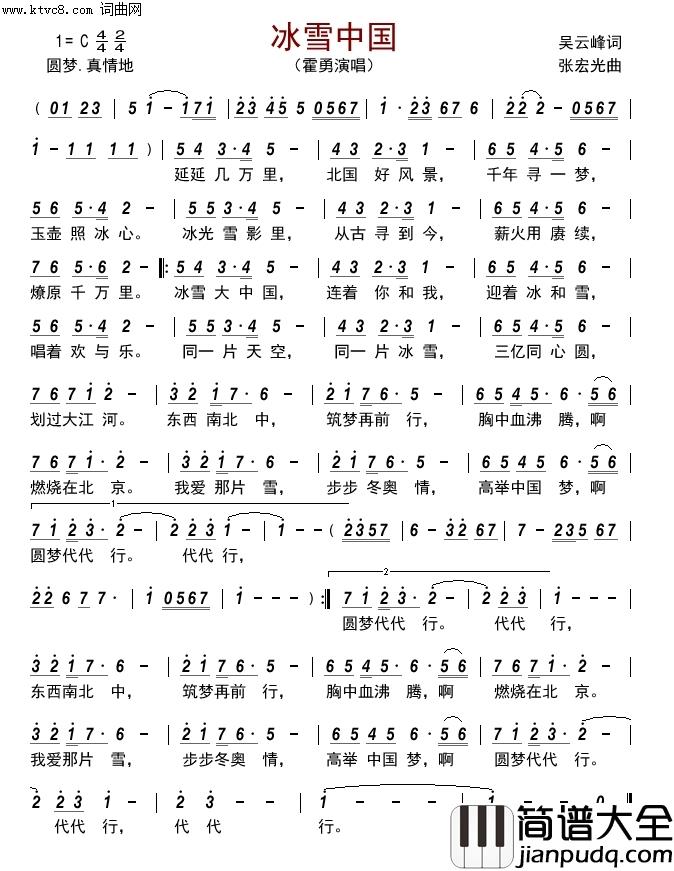 www.ktvc8.com 词曲网
冰雪中国
1=C 4/4 2/4
吴云峰词
圆梦.真情地
（霍勇演唱）
张宏光曲
( 01 23 | 5 1 - 171 | 23 45 5 0567 | 1 · 23 67 6 | 22 2 - 0567 |
1 - 11 11 ) | 54 3·4 5 - | 43 2·3 1 - | 65 4·5 6 - |
延延 几 万 里， 北国 好 风 景， 千年 寻 一 梦，
56 5·4 2 - | 54 3·4 5 - | 43 2·3 1 - | 65 4·5 6 - |
玉壶 照 冰 心。 冰光 雪 影 里， 从古 寻 到 今， 薪火 用 赓 续，
76 5·6 2 - ‖: 54 3·4 5 - | 43 2·3 1 - | 65 4·5 6 - |
燎原 千 万 里。 冰雪 大 中 国， 连着 你 和 我， 迎着 冰 和 雪，
56 5·4 2 - | 54 3·4 5 - | 43 2·3 1 - | 65 4·5 6 - |
唱着 欢 与 乐。 同一 片 天 空， 同一 片 冰 雪， 三亿 同 心 圆，
76 71 2 - | 32 17· 6 - | 21 76· 5 - | 65 45· 6 - 56 |
划过 大江 河。 东西 南北 中， 筑梦 再前 行， 胸中 血沸 腾，啊
76 71· 2 - | 32 17· 6 - | 21 76· 5 - | 65 45 6· 56 |
燃烧 在北 京。 我爱 那片 雪， 步步 冬奥 情， 高举 中国 梦，啊
1
71 23· 2 - | 22 23 1 - | 1 - - ( 2357 | 6 - 32 67 | 7 - 235 67 |
圆梦 代代 行。 代代 行，
2
22 6 77· | 1 0567 | 1 - - - ) :‖ 71 23· 2 - | 22 23 1 - - - |
圆梦 代代 行。 代代 行，
32 17· 6 - | 21 76· 5 - | 65 45· 6 56 | 76 71· 2 - |
东西南北 中， 筑梦再前 行， 胸中血沸 腾，啊 燃烧在北 京。
32 17· 6 - | 21 76 5 - | 65 45 6· 56 | 71 23· 2 - |
我爱那片 雪， 步步冬奥 情， 高举 中国 梦，啊 圆梦代代 行。
2 23 1 - | 2 2 3 - - | 1 - - - | 1 - - - | 1 0 0 0 ‖
代代 行， 代 代 行。
简谱大全
jianpudq.com